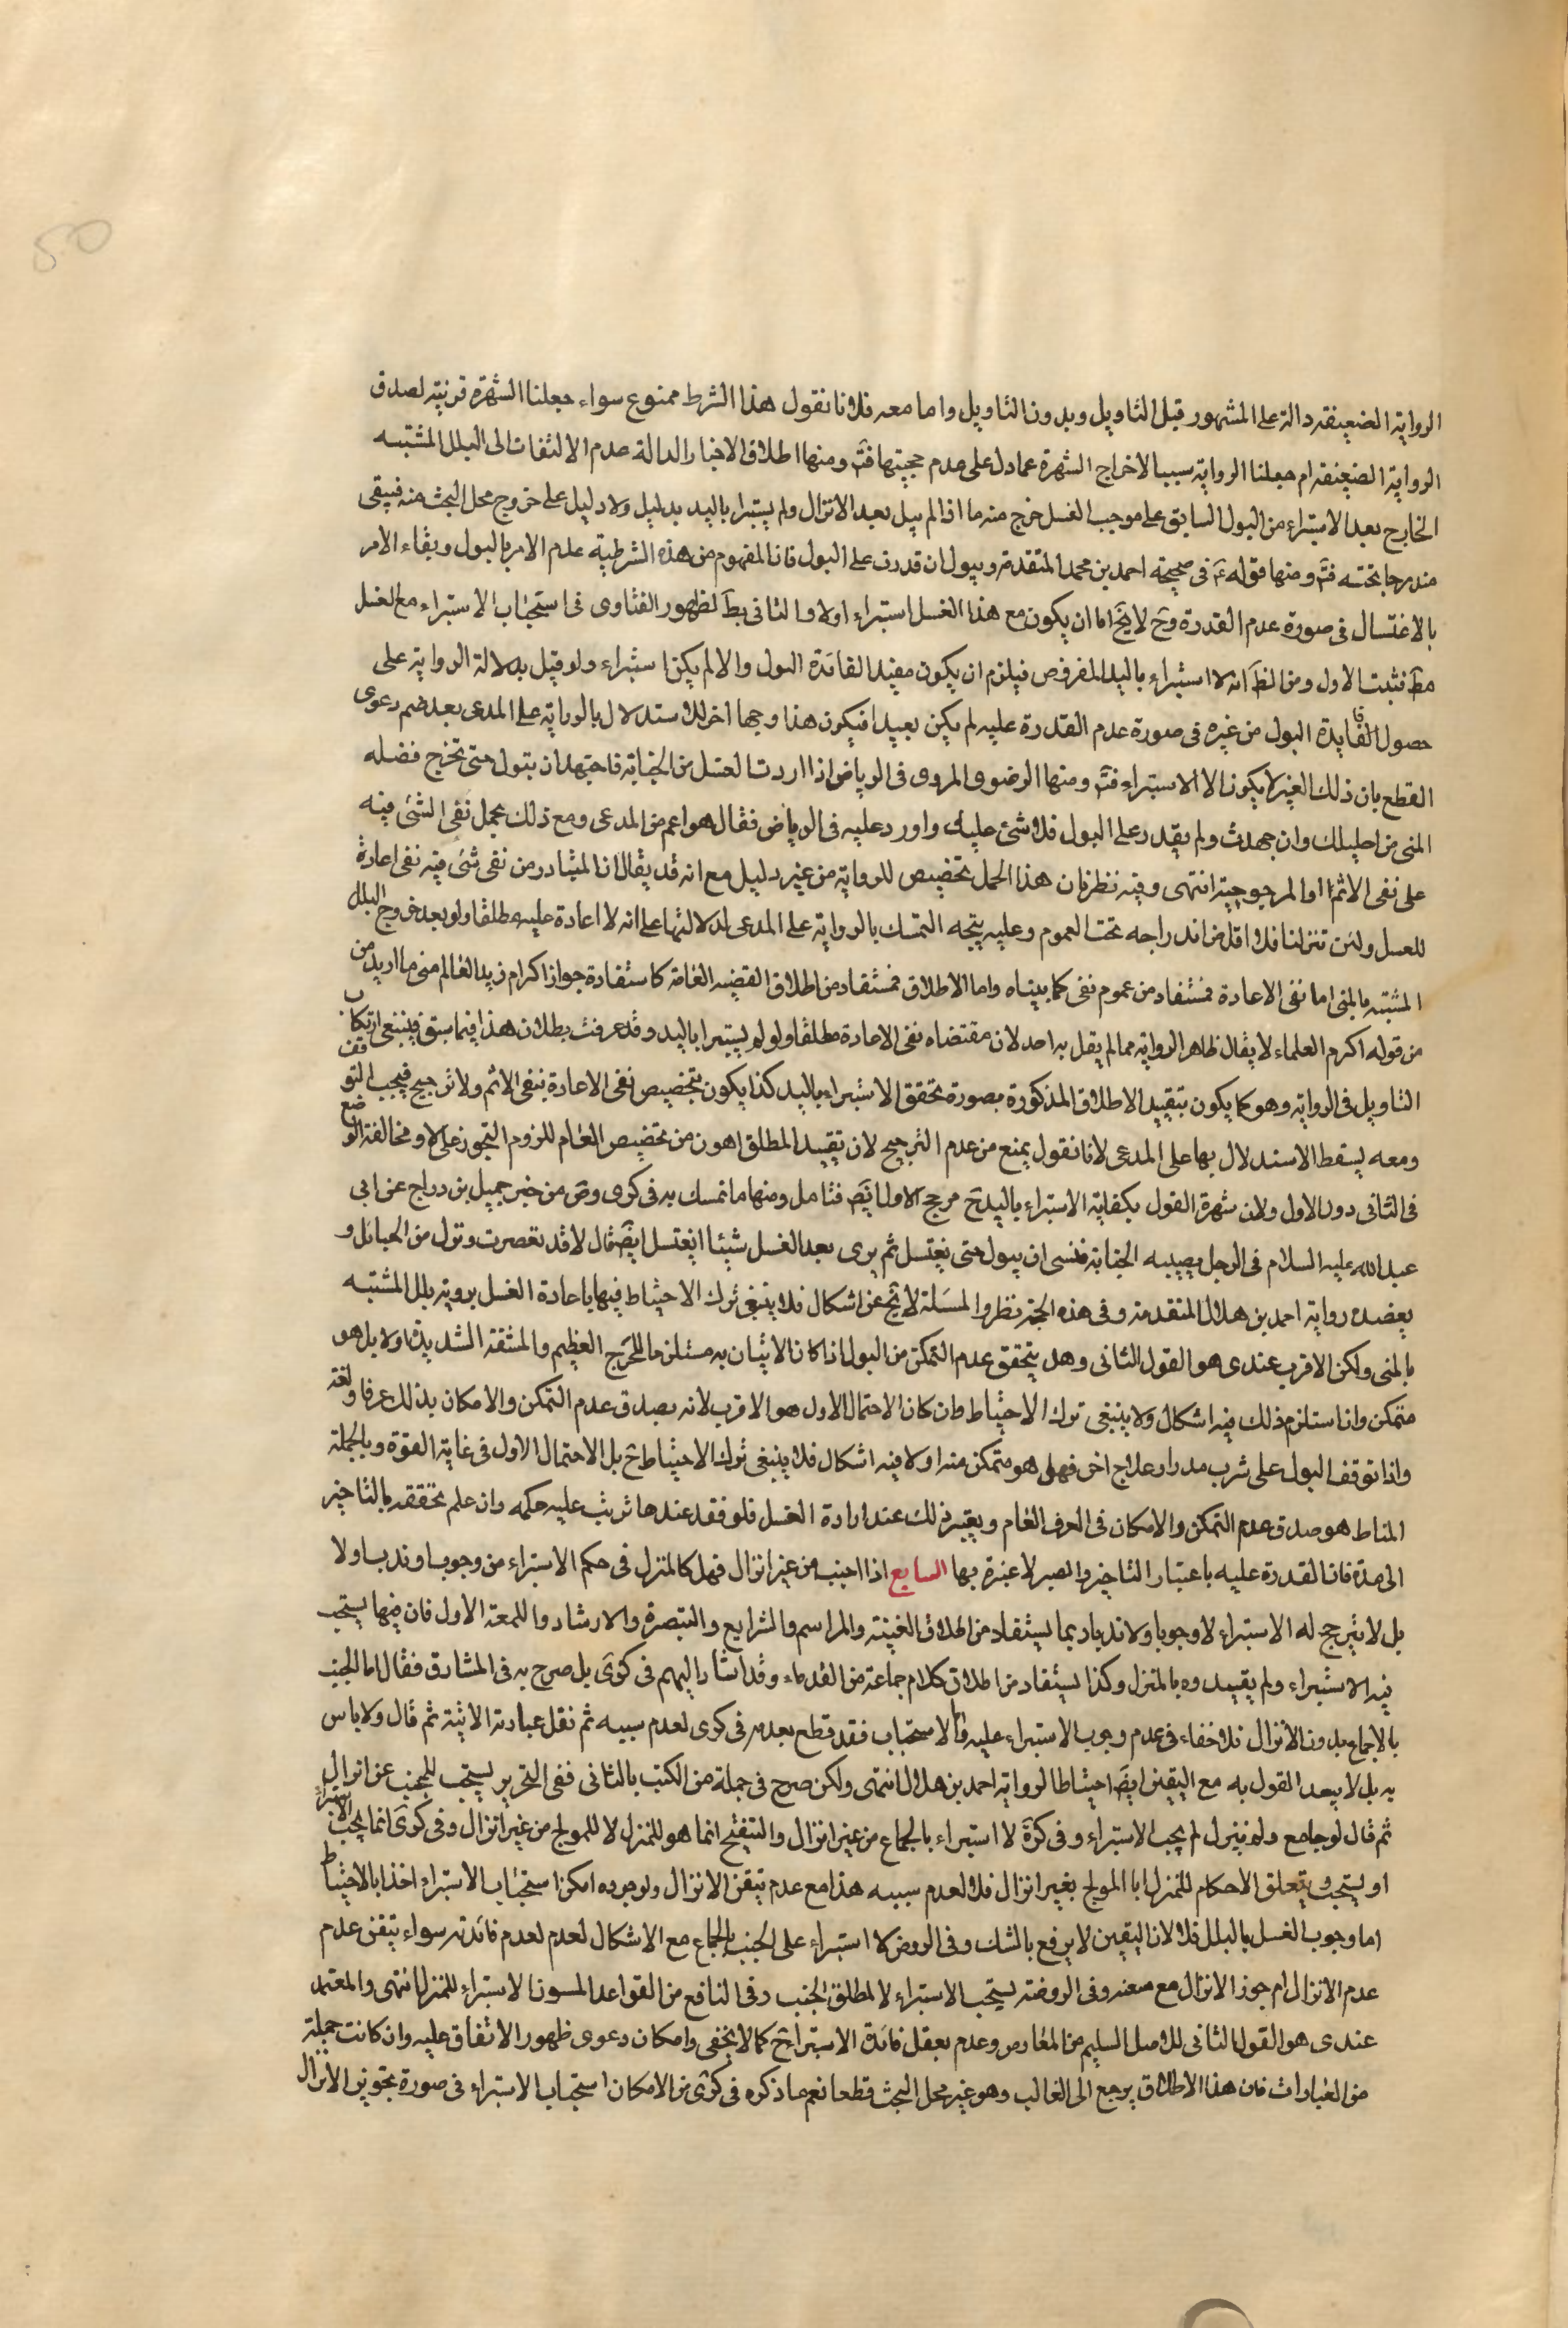 الرواية الضعيفة دالة على المشهور قبل التأويل وبدون التأويل واما معه فلانا نقول هذا الشرط ممنوع سواء جعلنا الشهرة قرينة لصدق
الرواية الضعيفة ام جعلنا الرواية سببا لاخراج الشهرة عما دل على عدم حجيتها فتَ ومنها اطلاق الاخبار الدالة عدم الالتفات الى البلل المشتبه
الخارج بعد الاستبراء من البول السابق على موجب الغسل خرج منه ما اذا لم يبل بعد الانزال ولم يستبرا باليد بدليل ولا دليل على خروج محل البحث منه فيبقى
مندرجا تحته فتَ ومنها قوله عَ فى صحيحة احمد بن محمد المتقدمة ويبول ان قدرت على البول فان المفهوم من هذه الشرطية عدم الامر بالبول وبقاء الامر
بالاغتسال فى صورة عدم القدرة وحَ لا يخَ اما ان يكون مع هذا الغسل استبراء اولا والثانى بطَ لظهور الفتاوى فى استحباب الاستبراء مع الغسل
مطَ فثبت الاول ومن الظَ انه لا استبراء باليد المفروض فيلزم ان يكون مفيدا لفائدة البول والا لم يكن استبراء ولو قيل بدلالة الرواية على
حصول الفايدة البول من غيره فى صورة عدم القدرة عليه لم يكن بعيدا فيكون هذا وجها اخر للاستدلال بالرواية على المدعى بعد ضم دعوى
القطع بان ذلك الغير لا يكون الا الاستبراء فتَ ومنها الرضوى المروى فى الرياض اذا اردت الغسل من الجنابة فاجتهد ان تبول حتى تخرج فضله
المنى من احليلك وان جهدت ولم يقدر على البول فلا شئ عليك واورد عليه فى الرياض فقال هو اعم من المدعى ومع ذلك يحمل نفى الشئ فيه
على نفى الاثم او المرجوحية انتهى وفيه نظر فان هذا الحمل تخصيص للرواية من غير دليل مع انه قد يقال ان المتبادر من نفى شئ فيه نفى اعادة
للغسل ولئن تنزلنا فلا اقل من اندراجه تحت العموم وعليه يتجه التمسك بالرواية على المدعى لدلالتها على انه لا اعادة عليه مطلقا ولو بعد خروج البلل
المشتبه بالمنى اما نفى الاعادة فمستفاد من عموم نفى كما بيناه واما الاطلاق فمستفاد من اطلاق القضيه العامة كاستفادة جواز اكرام زيد العالم منى ما اريد من
من قوله اكرم العلماء لا يقال ظاهر الرواية مما لم يقل به احد لان مقتضاه نفى الاعادة مطلقا ولو لم يستبرا باليد وقد عرفت بطلان هذا فيما سبق فينبغى ارتكاب
التاويل فى الرواية وهو كما يكون بتقييد الاطلاق المذكورة بصورة تحقق الاستبراء باليد كذا يكون بتخصيص نفى الاعادة بنفى الاثم ولا ترجيح فيجب التوقف
ومعه يسقط الاستدلال بها على المدعى لانا نقول يمنع من عدم الترجيح لان تقييد المطلق اهون من تخصيص العام للزوم التجوز على الاو مخالفة الوضع
فى الثانى دون الاول ولان شهرة القول بكفاية الاستبراء باليد حَ مرجح الاول ايضَ فتامل ومنها ما تمسك به فى كرى وض من خبر جميل بن دراج عن ابى
عبد الله عليه السلام فى الرجل يصيبه الجنابة فنسى ان يبول حتى يغتسل ثم يرى بعد الغسل شيئا ايغتسل ايضَ قال لا قد تعصرت ونزل من الحبائل و
يعضده رواية احمد بن هلال المتقدمة وفى هذه الحجة نظر والمسئلة لا يخَ عن اشكال فلا ينبغى ترك الاحتياط فيها باعادة الغسل بروية بلل المشتبه
بالمنى ولكن الاقرب عندى هو القول الثانى وهل يتحقق عدم التمكن من البول اذا كان الاتيان به مستلزما للحرج العظيم والمشقة الشديدة او لا بل هو
متمكن وان استلزم ذلك فيه اشكال ولا ينبغى ترك الاحتياط وان كان الاحتمال الاول هو الاقرب لانه يصدق عدم التمكن والامكان بذلك عرفا ولغة
واذا توقف البول على شرب مدر او علاج اخر فهل هو متمكن منه او لا فيه اشكال فلا ينبغى ترك الاحتياط حَ بل الاحتمال الاول فى غاية القوة وبالجملة
المناط هو صدق عدم التمكن والامكان فى العرف العام ويعتبر ذلك عند ارادة الغسل فلو فقد عندها ترتب عليه حكمه وان علم تحققه بالتاخير
الى مدة فان القدرة عليه باعتبار التاخير والصبر لا عبرة بها السابع اذا اجنب من غير انزال فهل كالمنزل فى حكم الاستبراء من وجوب او ندب او لا
بل لا يترجح له الاستبراء لا وجوبا ولا ندبا ربما يستفاد من اطلاق الغنية والمراسم والشرايع والتبصرة والارشاد واللمعة الاول فان فيها يستحب
فيه الاستبراء ولم يقيدوه بالمنزل وكذا يستفاد من اطلاق كلام جماعة من القدماء وقد اشار اليهم فى كرى بل صرح به فى المشارق فقال اما الجنب
بالاجماع بدون الانزال فلا خفاء فى عدم وجوب الاستبراء عليه واما الاستحباب فقد قطع بعدمه فى كرى لعدم سببه ثم نقل عبارته الاتية ثم قال ولا باس
به بل لا يبعد القول به مع اليقين ايضَ احتياطا لرواية احمد بن هلال انتهى ولكن صرح فى جملة من الكتب بالثانى ففى التحرير يستحب للمجنب عن انزال الاستبراء
ثم قال لو جامع ولم ينزل لم يجب الاستبراء وفى كرَة لا استبراء بالجماع من غير انزال والتنقيح انما هو للمنزل لا للمولج من غير انزال وفى كرى انما يجب
او يستحب ويتعلق الاحكام للمنزل اما المولج بغير انزال فلا لعدم سببه هذا مع عدم تيقن الانزال ولو جوده امكن استحباب الاستبراء اخذا بالاحتياط
اما وجوب الغسل بالبلل فلا لان اليقين لا يرفع بالشك وفى الروض لا استبراء على الجنب بالجماع مع الاشكال لعدم لعدم فائدته سواء يتقن عدم
عدم الانزال ام جوز الانزال مع معنه وفى الروضة يستحب الاستبراء لا لمطلق الجنب وفى النافع من القواعد المسنون الاستبراء للمنزل انتهى والمعتمد
عندى هو القول الثانى للاصل السليم من المعارض وعدم يعقل فائدة الاستبراء حَ كما لا يخفى وامكان دعوى ظهور الاتفاق عليه وان كانت جملة
من العبارات فان هذا الاطلاق يرجع الى الغالب وهو غير محل البحث قطعا نعم ما ذكره فى كرى من الامكان استحباب الاستبراء فى صورة تجويز الانزال